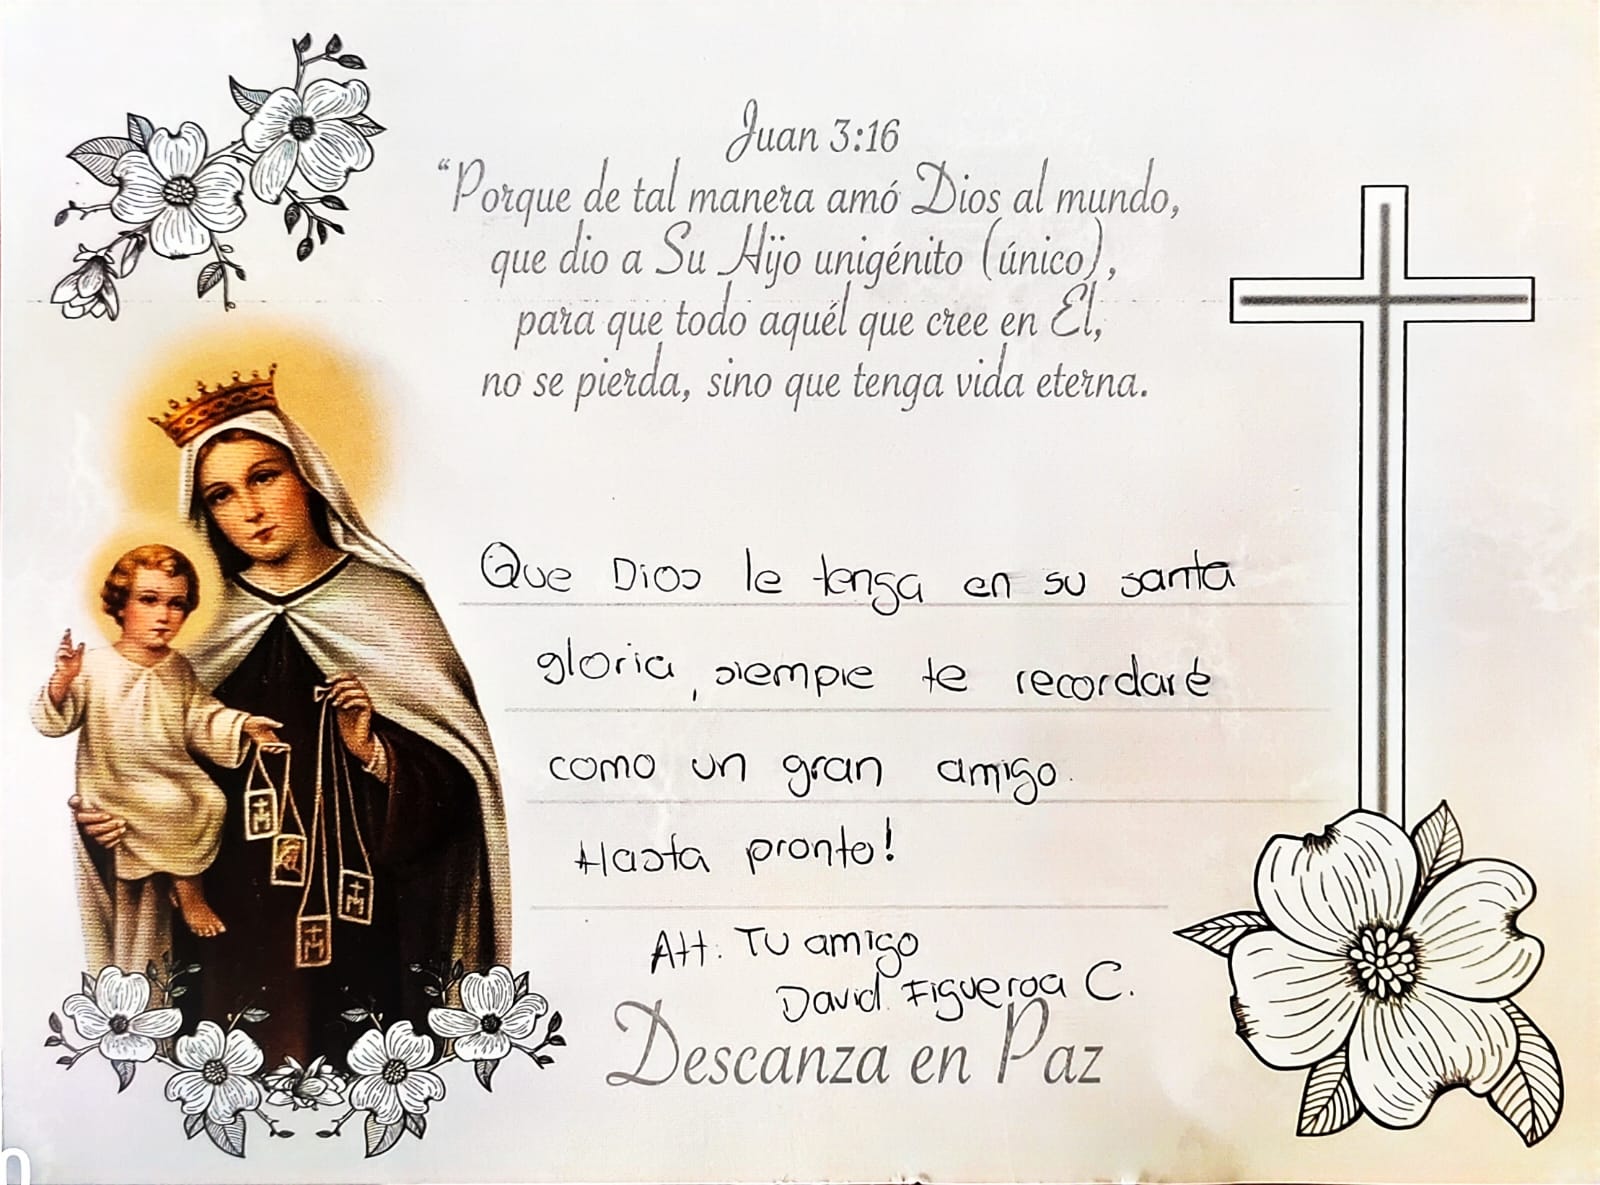 Juan 3:16
“Porque de tal manera amó Dios al mundo,
que dio a Su Hijo unigénito (único),
para que todo aquél que cree en Él,
no se pierda, sino que tenga vida eterna.
Que Dios le tenga en su santa
gloria, siempre te recordaré
como un gran amigo.
Hasta pronto!
Att: Tu amigo
David Figueroa C.
Descanza en Paz